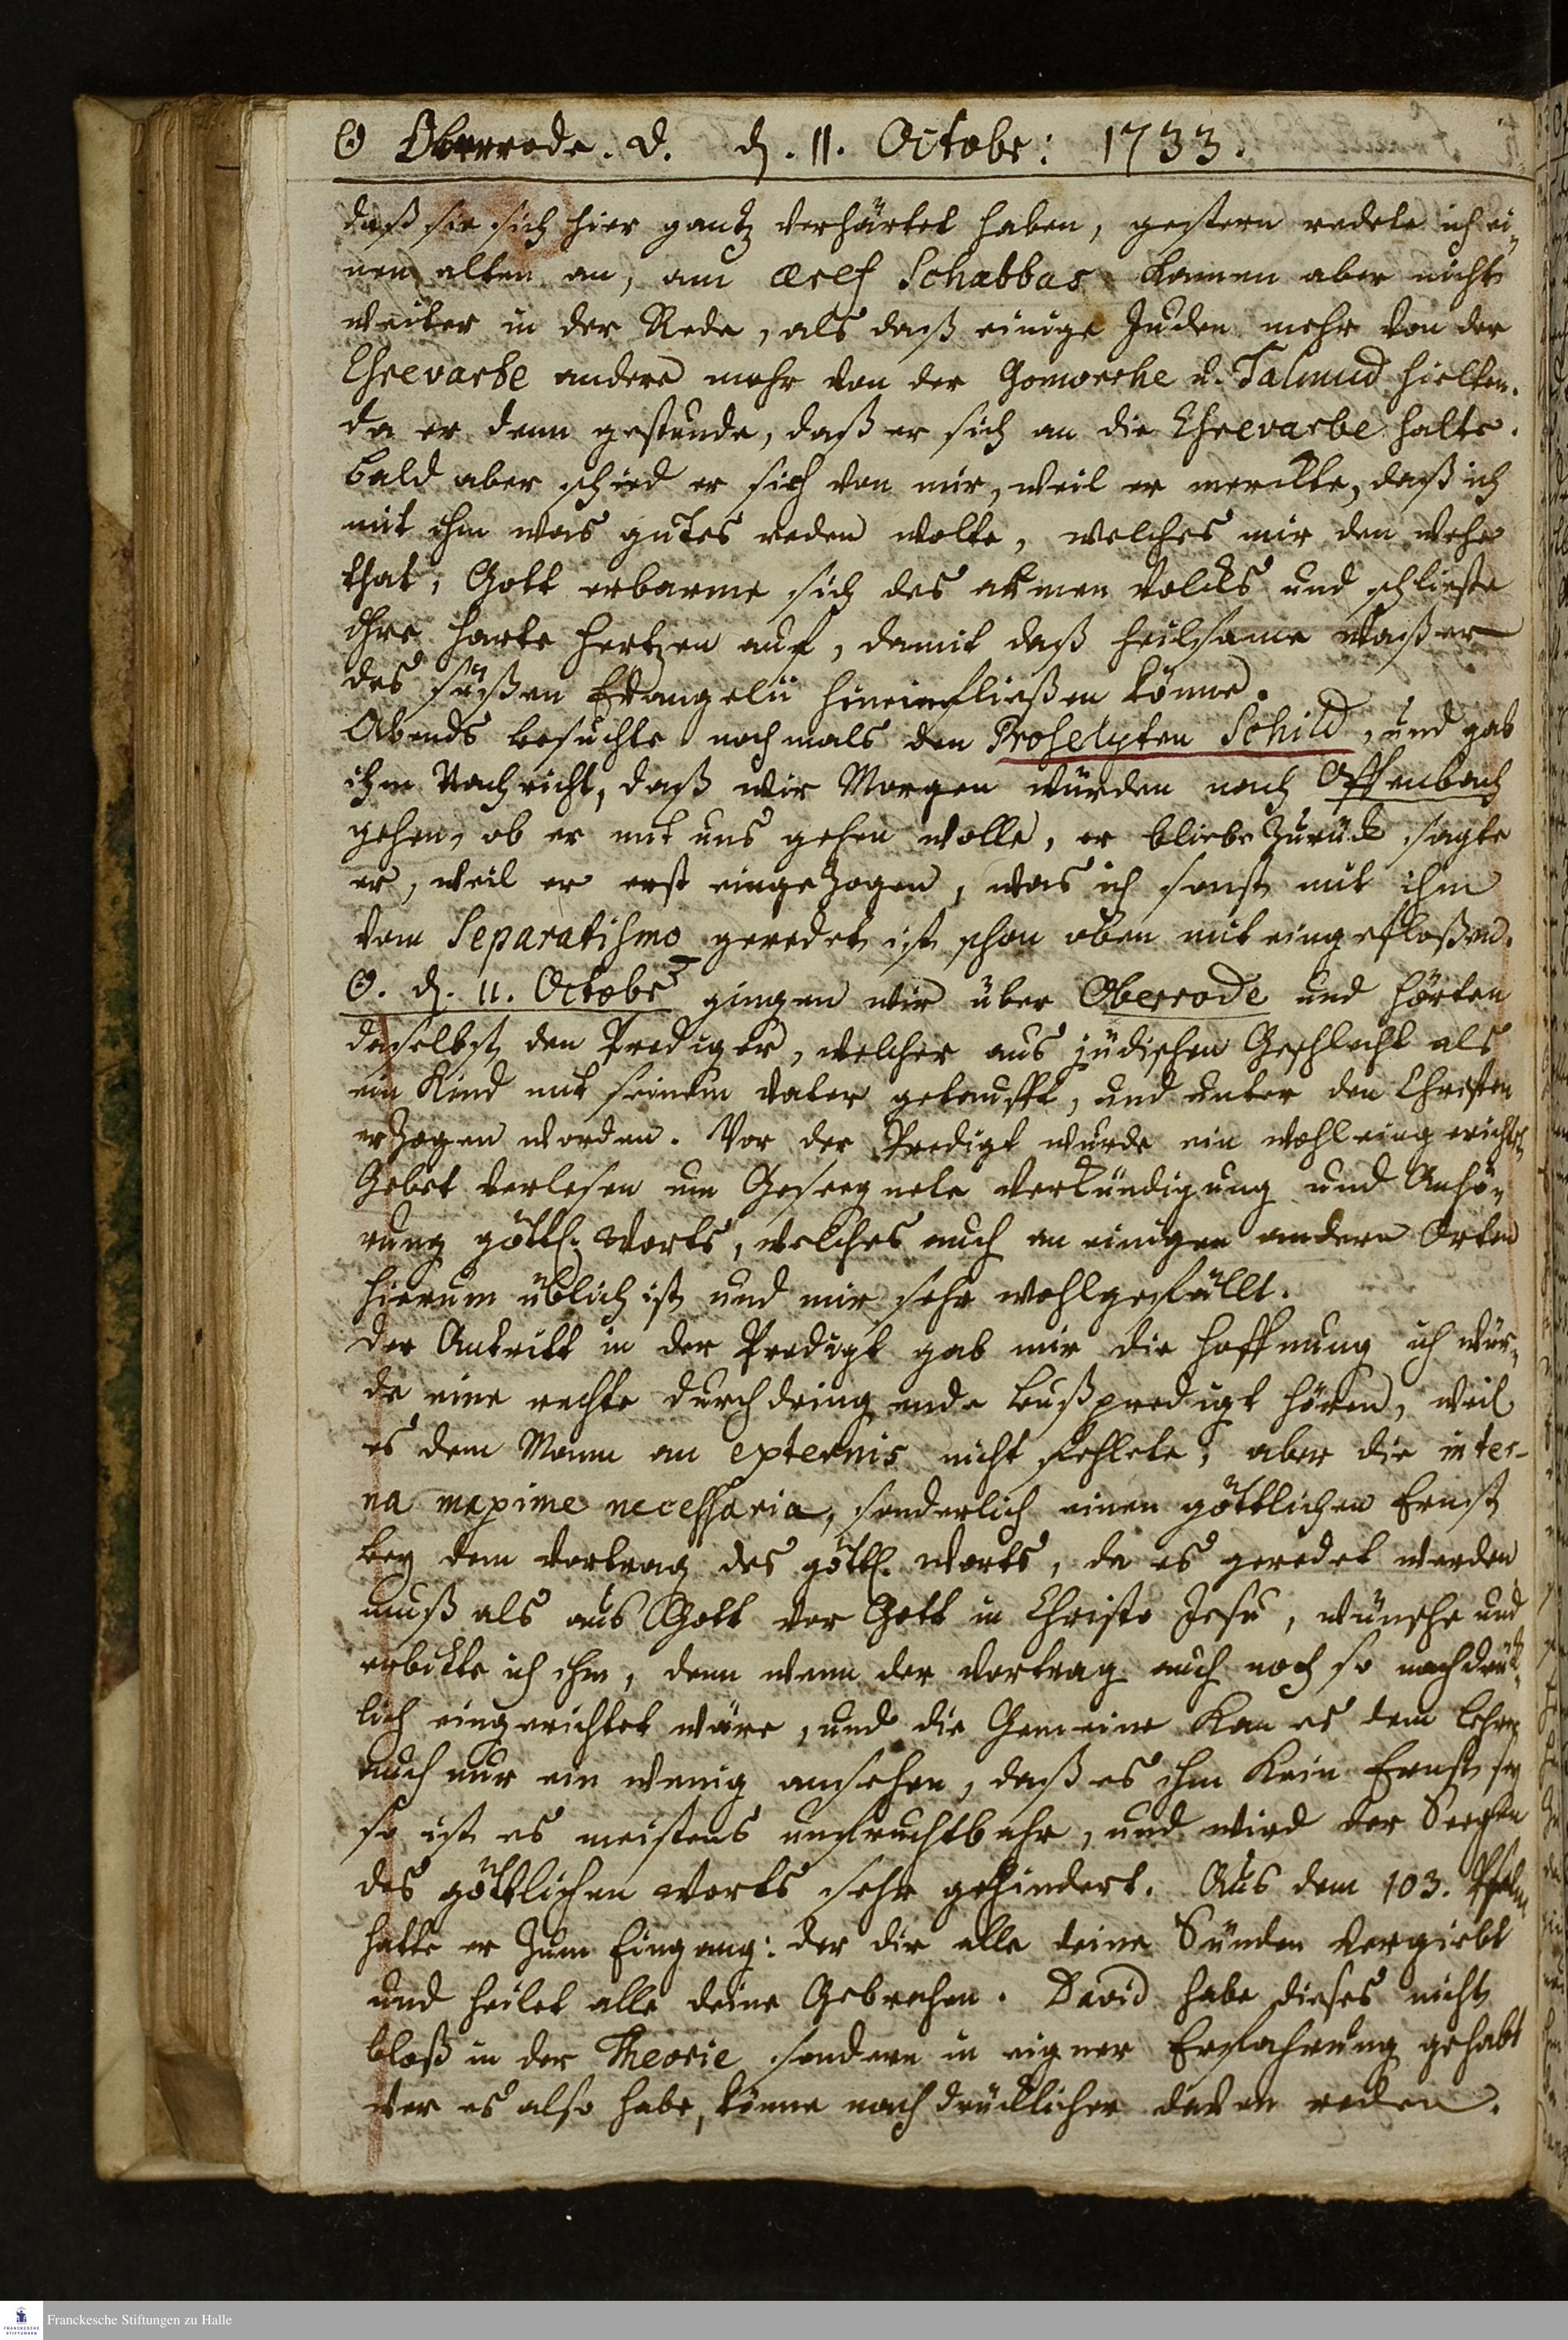 ☉ Oberrode. d. d. 11. Octobr: 1733.
daß sie sich hier gantz verhärtet haben, gestern redete ich ei-
nen alten an, am æref Schabbas kamen aber nicht
weiter in der Rede, als daß einige Juden mehr von der
Esrevarbe andere mehr von der Gomorrhe u. Talmud hielten.
da er denn gestunde, daß er sich an die Esrevarbe halte.
bald aber schied er sich von mir, weil er merckte, daß ich
mit ihm was gutes reden wolte, welches mir den wehe
that, Gott erbarme sich des armen Volcks und schließe
Ihre harte Hertzen auf, damit daß heilsame Waßer
des süßen Evangelii hineinfließen könne.
Abends besuchte nochmals den Proselyten Schild, und gab
ihm Nachricht, daß wir Morgen würden nach Offenbach
gehen, ob er mit uns gehen wolle, er bliebe zurück sagte
er, weil er erst eingezogen, was ich sonst mit ihm
vom Separatismo geredet ist schon oben mit eingefloßen.
☉. d. 11. Octobr gingen wir über Oberrode und hörten
daselbst den Prediger, welcher aus jüdischen Geschlecht als
ein Kind mit seinem Vater getaufft, und unter den Christen
erzogen worden. Vor der Predigt wurde ein wohl eingericht
Gebet verlesen um Geseegnete Verkündigung und Anhö-
rung göttl. Worts, welches auch an einigen andern Orten
hierum üblich ist und mir sehr wohlgefällt.
Der Antritt in der Predigt gab mir die Hoffnung ich wür-
de eine rechte durchdringende Bußpredigt hören, weil
es dem Mann an externis nicht fehlete, aber die inter-
na maxime necessaria, sonderlich einen göttlichen Ernst
bey dem Vortrag des göttl. Worts, da es geredet werden
muß als aus Gott vor Gott in Christo Jesu, wünsche und
erbitte ich ihm, denn wenn der Vortrag auch noch so nachdrück-
lich eingerichtet wäre, und die Gemeine kan es dem Lehrer
auch nur ein wenig ansehen, daß es ihm kein Ernst sey
so ist es meistens unfruchtbahr, und wird der Seegen
des göttlichen Worts sehr gehindert. Aus dem 103. Psalm
hatte er zum Eingang: der dir alle deine Sünden vergiebt
und heilet alle deine Gebrechen. David habe dieses nicht
bloß in der Theorie sondern in eigner Erfahrung gehabt
wer es also habe, könne nachdrücklicher davon reden.
Franckesche Stiftungen zu Halle
FRANCKESCHE
STIFTUNGEN